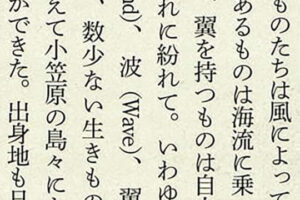 ものたちは風によって
あるものは海流に乗
、翼を持つものは自
れに紛れて。いわゆ
nd)、波(Wave)、翼
、数少ない生きもの
えて小笠原の島々に
ができた。出身地も